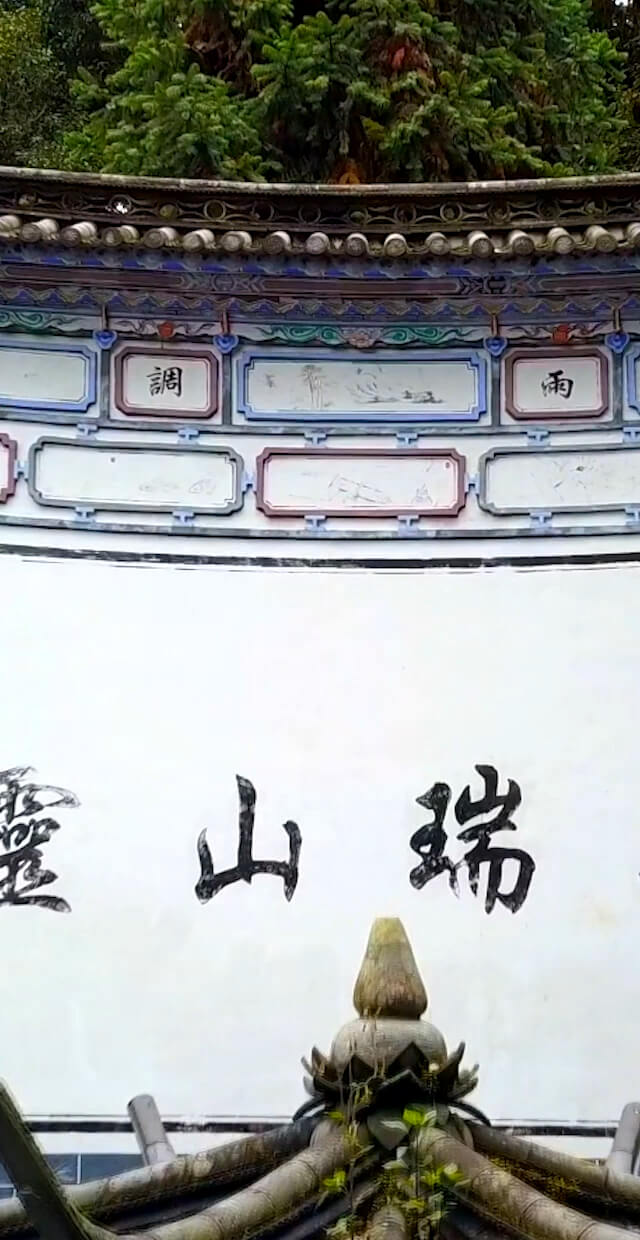 雨調
瑞山靈